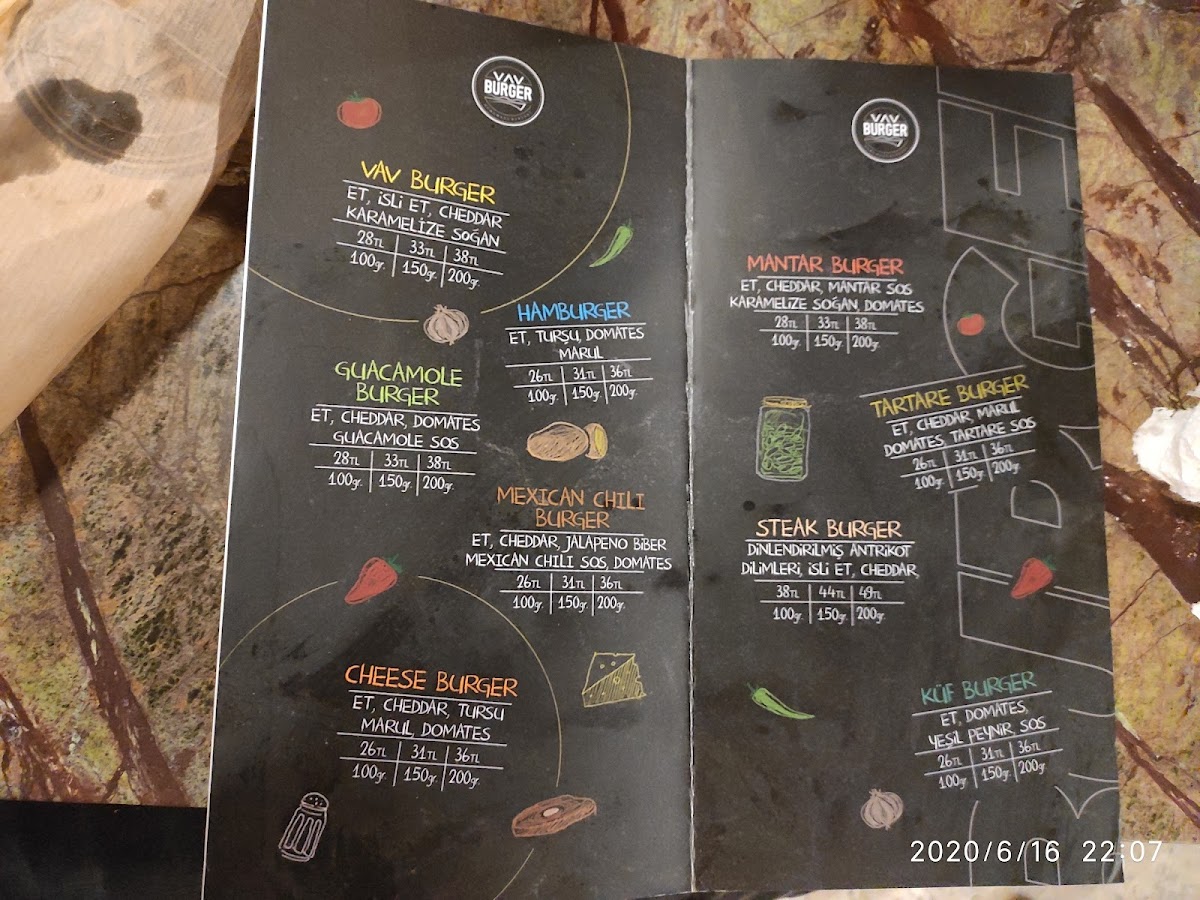 VAV
BURGER
VAV BURGER
ET, İSLİ ET, CHEDDAR
KARAMELİZE SOĞAN
28TL 33TL 38TL
100gr. 150gr. 200gr.
HAMBURGER
ET, TURŞU, DOMATES
MARUL
26TL 31TL 36TL
100gr. 150gr. 200gr.
GUACAMOLE
BURGER
ET, CHEDDAR, DOMATES
GUACAMOLE SOS
28TL 33TL 38TL
100gr. 150gr. 200gr.
MEXICAN CHILI
BURGER
ET, CHEDDAR, JALAPENO BİBER
MEXICAN CHILI SOS, DOMATES
26TL 31TL 36TL
100gr. 150gr. 200gr.
CHEESE BURGER
ET, CHEDDAR, TURSU
MARUL, DOMATES
26TL 31TL 36TL
100gr. 150gr. 200gr.
VAV
BURGER
MANTAR BURGER
ET, CHEDDAR, MANTAR SOS
KARAMELİZE SOĞAN, DOMATES
28TL 33TL 38TL
100gr. 150gr. 200gr.
TARTARE BURGER
ET, CHEDDAR, MARUL
DOMATES, TARTARE SOS
26TL 31TL 36TL
100gr. 150gr. 200gr.
STEAK BURGER
DİNLENDİRİLMİŞ ANTRİKOT
DİLİMLERİ, İSLİ ET, CHEDDAR,
38TL 44TL 49TL
100gr. 150gr. 200gr.
KÜF BURGER
ET, DOMATES,
YEŞİL PEYNİR, SOS
26TL 31TL 36TL
100gr. 150gr. 200gr.
2020/6/16 22:07